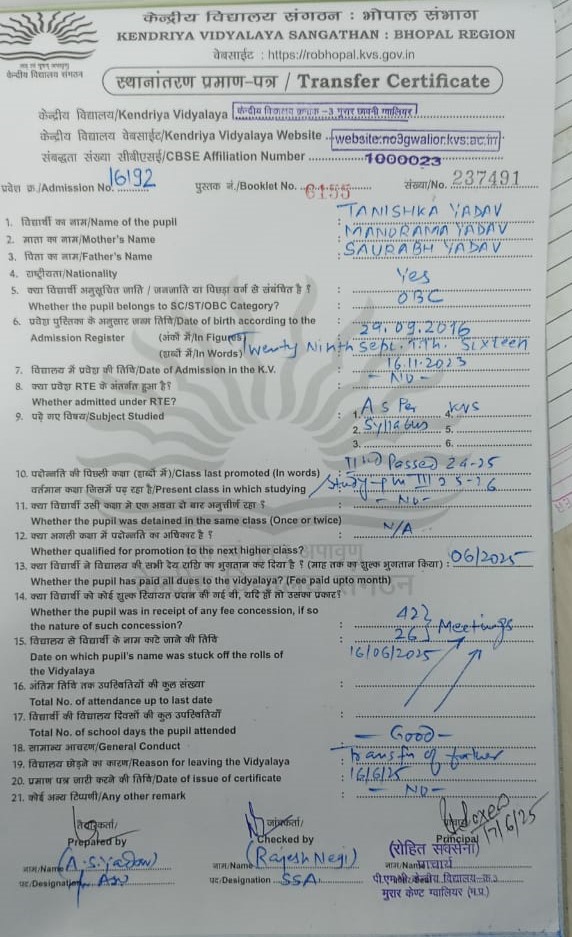 केन्द्रीय विद्यालय संगठन : भोपाल संभाग
KENDRIYA VIDYALAYA SANGATHAN : BHOPAL REGION
वेबसाईट : https://robhopal.kvs.gov.in
केन्द्रीय विद्यालय संगठन
स्थानांतरण प्रमाण-पत्र / Transfer Certificate
केन्द्रीय विद्यालय/Kendriya Vidyalaya केन्द्रीय विद्यालय क्रमांक -3 मुरार छावनी ग्वालियर
केन्द्रीय विद्यालय वेबसाईट/Kendriya Vidyalaya Website website:no3gwalior.kvs.ac.in
संबद्धता संख्या सीबीएसई/CBSE Affiliation Number 1000023
प्रवेश क्र./Admission No. 16192 पुस्तक नं./Booklet No. 6155 संख्या/No. 237491
1. विद्यार्थी का नाम/Name of the pupil : TANISHKA YADAV
2. माता का नाम/Mother's Name : MANORAMA YADAV
3. पिता का नाम/Father's Name : SAURABH YADAV
4. राष्ट्रीयता/Nationality
5. क्या विद्यार्थी अनुसूचित जाति / जनजाति या पिछड़ा वर्ग से संबंधित है ? : Yes
Whether the pupil belongs to SC/ST/OBC Category? : OBC
6. प्रवेश पुस्तिका के अनुसार जन्म तिथि/Date of birth according to the
Admission Register (अंकों में/In Figures) : 29.09.2016
(शब्दों में/In Words) Twenty Ninth Sept. T.Th. Sixteen
7. विद्यालय में प्रवेश की तिथि/Date of Admission in the K.V. : 16.11.2023
8. क्या प्रवेश RTE के अंतर्गत हुआ है? : - NO -
Whether admitted under RTE?
9. पढ़े गए विषय/Subject Studied 1. As Per 4. KVS
2. Syllabus 5.
3. 6.
10. पदोन्नति की पिछली कक्षा (शब्दों में)/Class last promoted (In words) : Passed 24-25
वर्तमान कक्षा जिसमें पढ़ रहा है/Present class in which studying Study in III 25-26
11. क्या विद्यार्थी उसी कक्षा में एक अथवा दो बार अनुत्तीर्ण रहा ? : - No -
Whether the pupil was detained in the same class (Once or twice)
12. क्या अगली कक्षा में पदोन्नति का अधिकार है ? : N/A
Whether qualified for promotion to the next higher class?
13. क्या विद्यार्थी ने विद्यालय की सभी देय राशि का भुगतान कर दिया है ? (माह तक का शुल्क भुगतान किया) : 06/2025
Whether the pupil has paid all dues to the vidyalaya? (Fee paid upto month)
14. क्या विद्यार्थी को कोई शुल्क रियायत प्रदान की गई थी, यदि हाँ तो उसका प्रकार?
Whether the pupil was in receipt of any fee concession, if so : 42}
the nature of such concession? 26} Meetings
15. विद्यालय से विद्यार्थी के नाम काटे जाने की तिथि : 16/06/2025
Date on which pupil's name was stuck off the rolls of
the Vidyalaya
16. अंतिम तिथि तक उपस्थितियों की कुल संख्या :
Total No. of attendance up to last date
17. विद्यार्थी की विद्यालय दिवसों की कुल उपस्थितियाँ :
Total No. of school days the pupil attended
18. सामान्य आचरण/General Conduct : - Good -
19. विद्यालय छोड़ने का कारण/Reason for leaving the Vidyalaya : Transfer of father
20. प्रमाण पत्र जारी करने की तिथि/Date of issue of certificate : 16/6/25
21. कोई अन्य टिप्पणी/Any other remark : - NO -
तैयारकर्ता/ जांचकर्ता/ 17/6/25
Prepared by Checked by Principal
(रोहित सक्सेना)
नाम/Name (A.S. Yadav) नाम/Name (Rajesh Negi) नाम/Name प्राचार्य
पद/Designation पद/Designation SSA पी.एम.श्री केन्द्रीय विद्यालय-क्र.3
मुरार केण्ट ग्वालियर (म.प्र.)